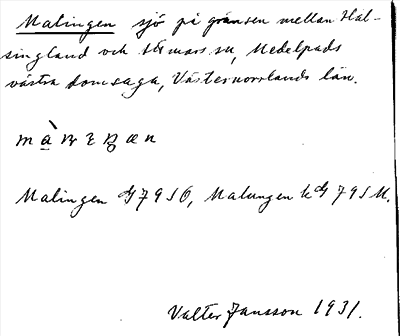 Malingen sjö på gränsen mellan Häl-
singland och sn, Medelpads
västra domsaga, Västernorrlands län.
Malingen 79 SO, Malungen 79 S
Valter Jansson 1931.